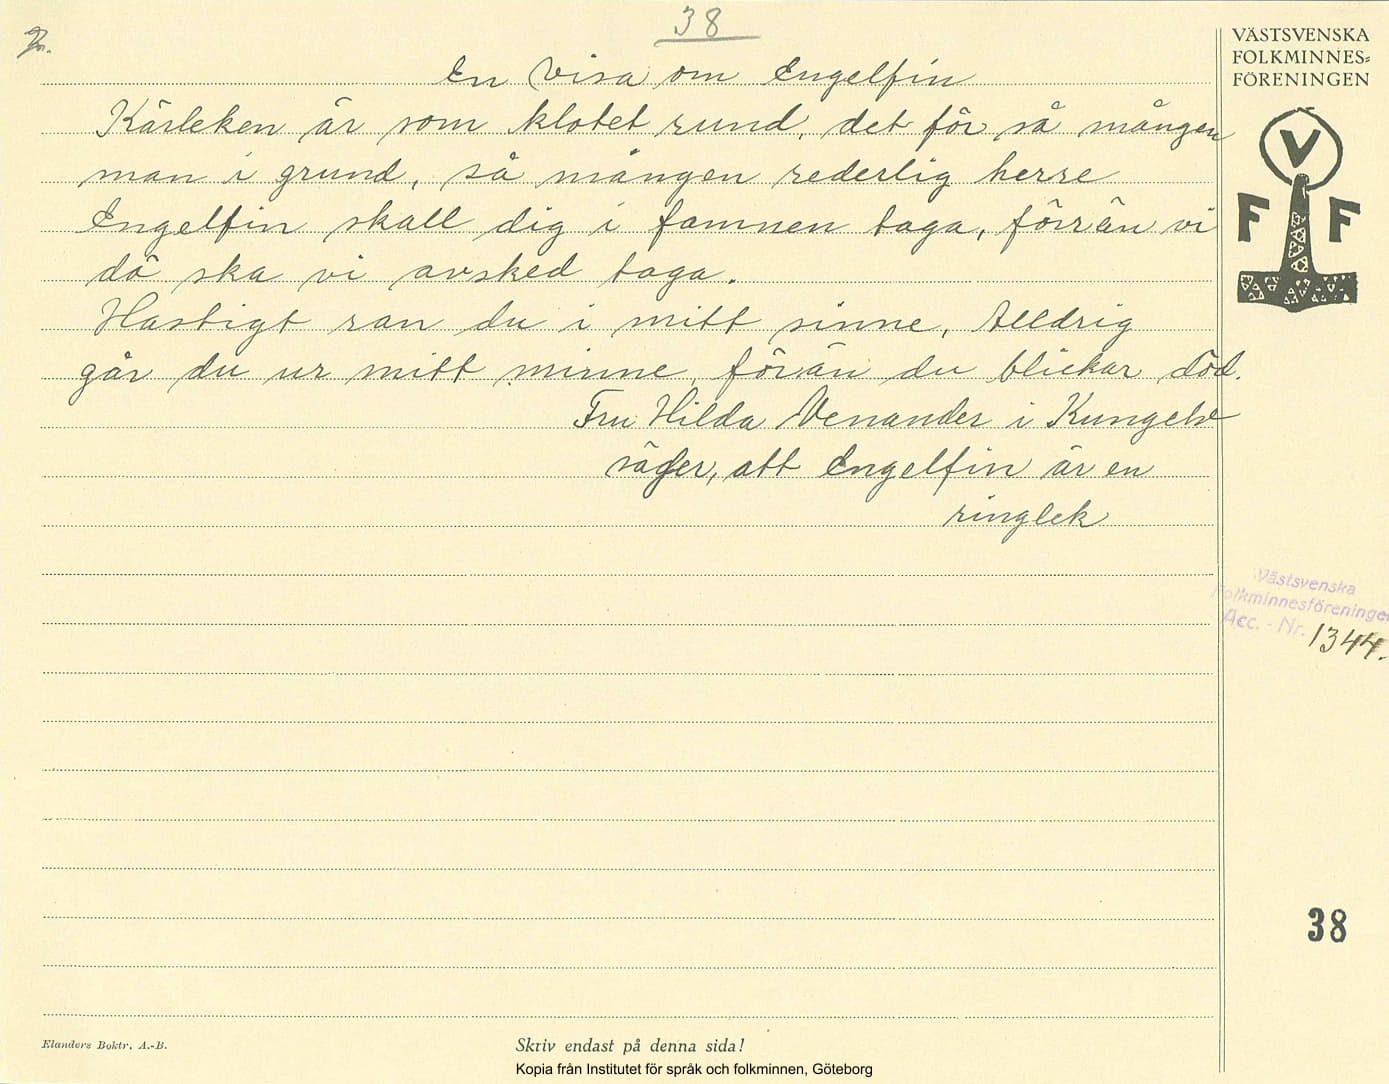 38
En visa om Engelfin
Kärleken är som klotet rund, det för så mången
man i grund, så mången rederlig herre
Engelfin skall dig i famnen taga, förrän vi
dö ska vi avsked taga.
Hastigt ran du i mitt sinne, Alldrig
går du ur mitt minne, förän du blickar död.
Fru Hilda Venander i Kungelv
säger, att Engelfin är en
ringlek
VÄSTSVENSKA
FOLKMINNES=
FÖRENINGEN
V
F F
Västsvenska
Folkminnesföreningen
Acc. - Nr. 1344.
38
Elanders Boktr. A.-B.
Skriv endast på denna sida!
Kopia från Institutet för språk och folkminnen, Göteborg